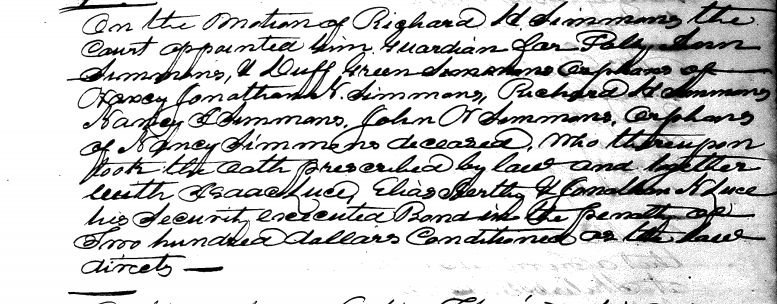 On the motion of Richard H. Simmons the
Court appointed him Guardian for Poly Ann
Simmons, & Duff Green Simmons Orphans of
Nancy Jonathan N. Simmons, Richard H Simmons
Nancy S Simmons, John W Simmons, Orphans
of Nancy Simmons deceased, Who thereupon
took the Oath prescribed by law and together
with Isaac Luce, Elias & Jonathan N Luce
his Securit executed Bond in the penalty of
Two hundred dollars Conditioned as the law
directs —